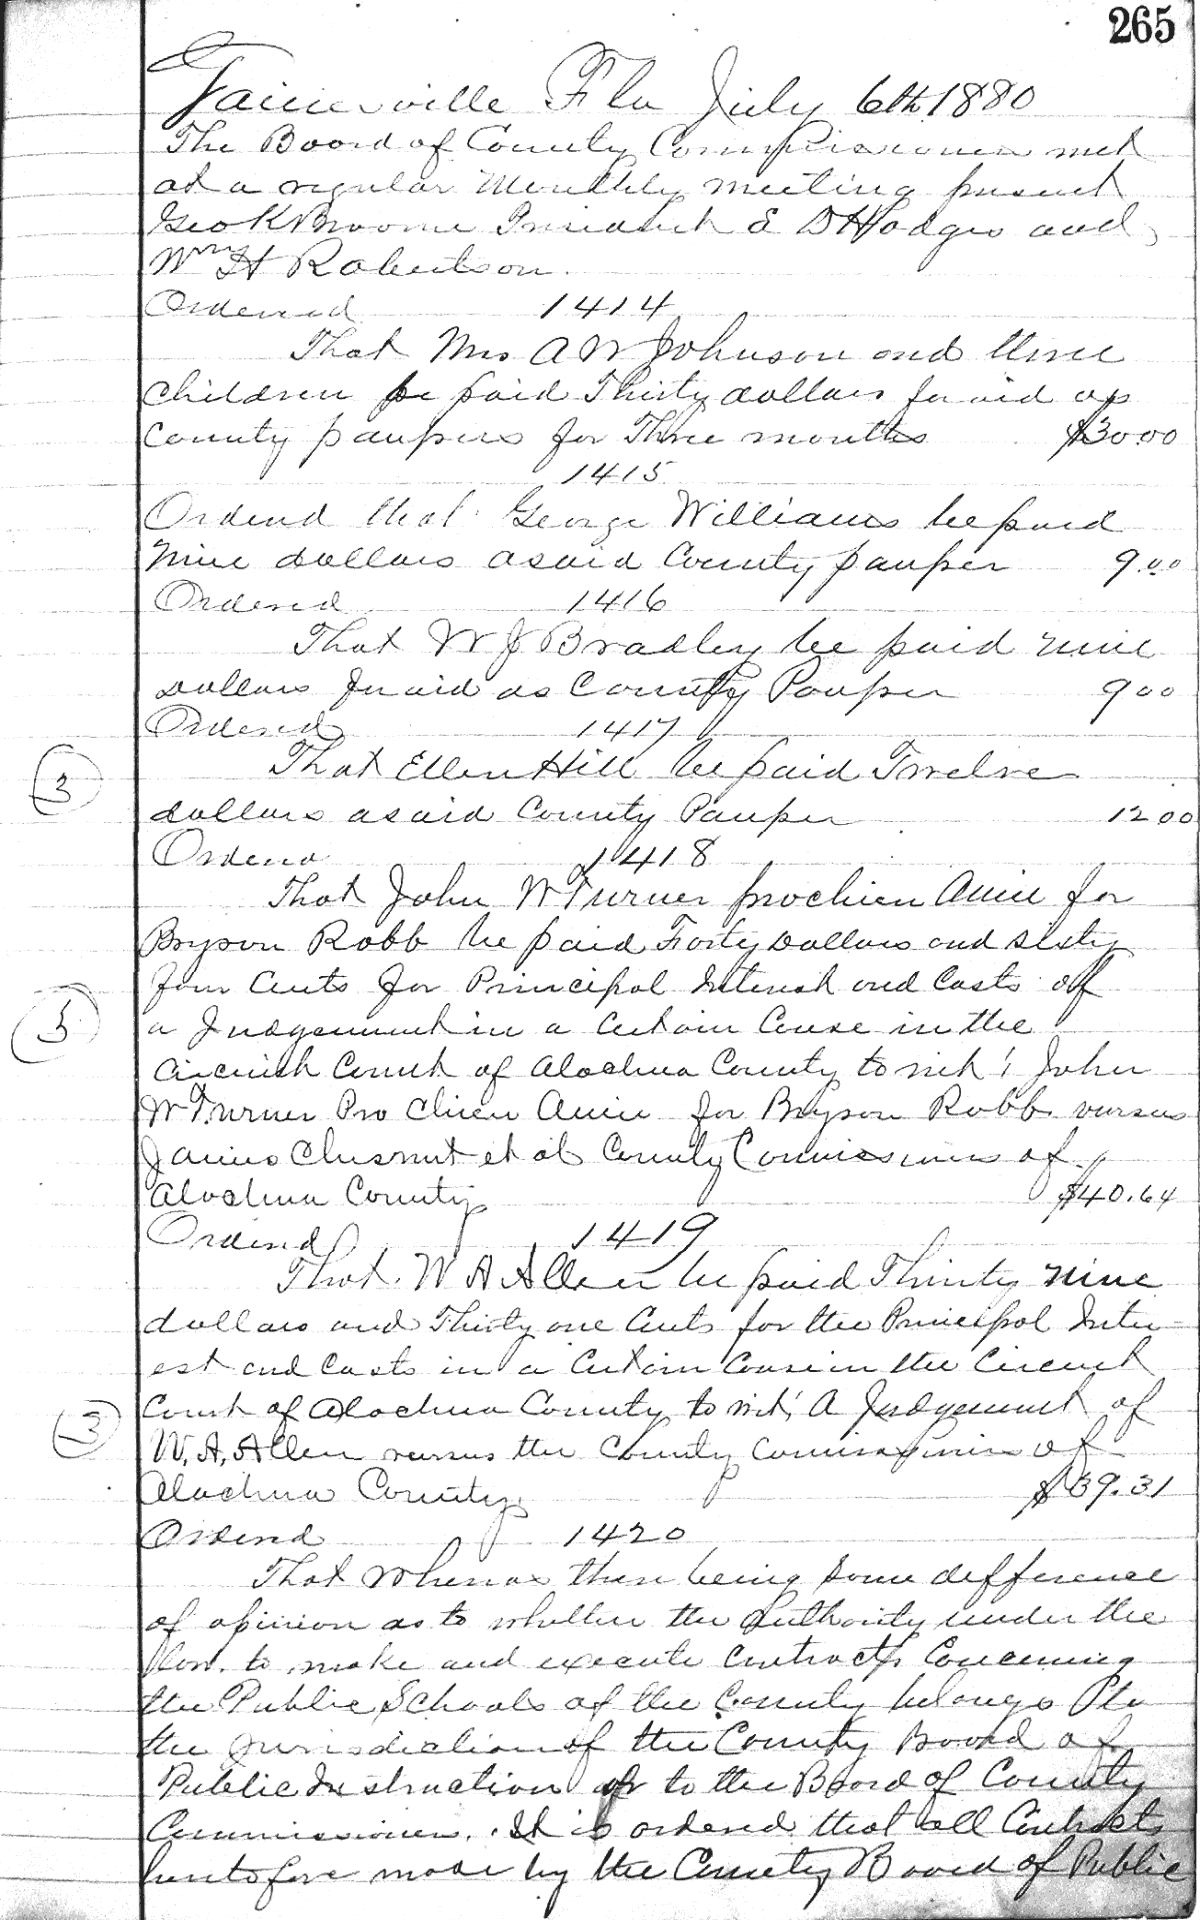 265
Gainesville Fla July 6th 1880
The Board of County Commissioners met
at a regular Monthly meeting present
Geo K Broome President E D Hodges and
Wm H Robertson.
Ordered 1414
That Mrs A W Johnson and three
children be paid Thirty dollars for aid as
County paupers for Three months $30.00
1415
Ordered that George Williams be paid
Nine dollars as aid County pauper 9.00
Ordered 1416
That W J Bradley be paid nine
dollars for aid as County Pauper 9 00
Ordered 1417
That Ellen Hill be paid Twelve
3
dollars as aid County Pauper 12 00
Ordered 1418
That John W Turner prochien Amie for
Bryson Robb be paid Forty Dollars and sixty
four Cents for Principal Interest and Costs of
5
a Judgement in a Certain Cause in the
Circuit Court of Alachua County to wit! John
W Turner Pro Chien Amie for Bryson Robb versus
James Chesnut et als County Commissioners of
Alachua County $40.64
Ordered 1419
That. W A Allen be paid Thirty nine
dollars and Thirty one Cents for the Principal Inter-
est and Costs in a Certain Cause in the Circuit
Court of Alachua County to wit! A Judgement of
3
W. A. Allen versus the County Commissioners of
Alachua County $39.31
Ordered 1420
That Whereas there being some defference
of opinion as to whether the Authority under the
law. to make and execute Contracts Concerning
the Public Schools of the County belongs to
the Jurisdiction of the County Board of
Public Instruction or to the Board of County
Commissioners. It is ordered that all Contracts
heretofore made by the County Board of Public